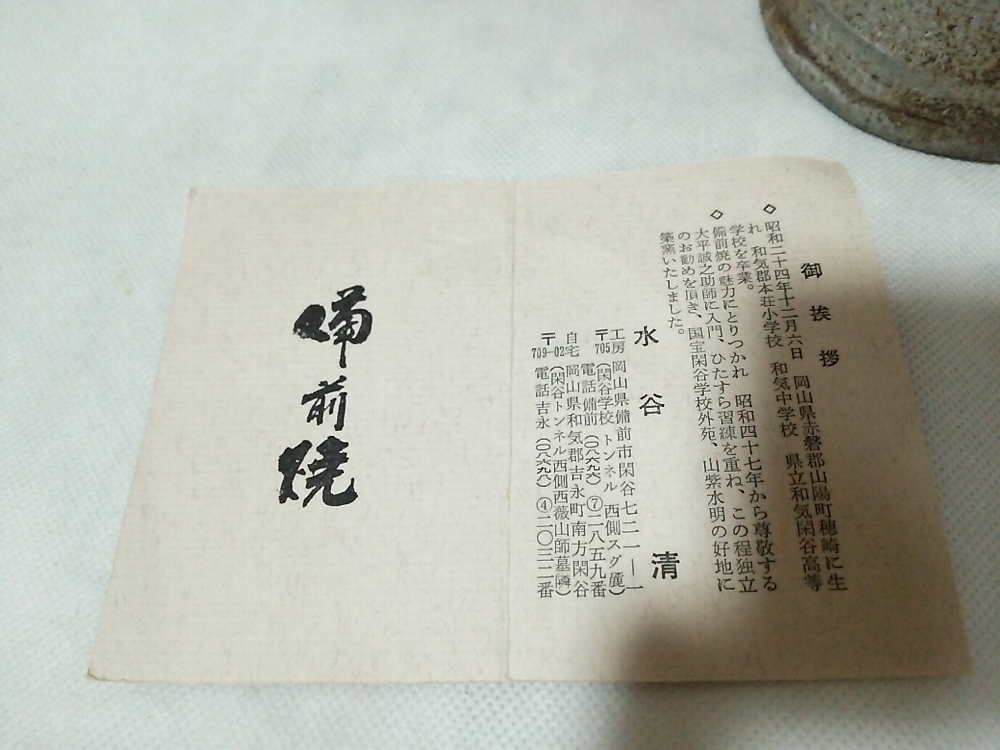 御挨拶
◇昭和二十四年十二月六日 岡山県赤磐郡山陽町穂崎に生
れ 和気郡本荘小学校 和気中学校 県立和気閑谷高等
学校を卒業。
◇備前焼の魅力にとりつかれ 昭和四十七年から尊敬する
大平誠之助師に入門、ひたすら習練を重ね、この程独立
のお勧めを頂き、国宝閑谷学校外苑、山紫水明の好地に
築窯いたしました。
水谷 清
工房 岡山県備前市閑谷七二一―一
〒705 (閑谷学校トンネル 西側スグ)
電話 備前(〇八六九六)⑦二八五九番
自宅 岡山県和気郡吉永町南方閑谷
〒709-02 (閑谷トンネル西側西薇山師墓隣)
電話 吉永(〇八六九八)④二〇三二番
備前焼